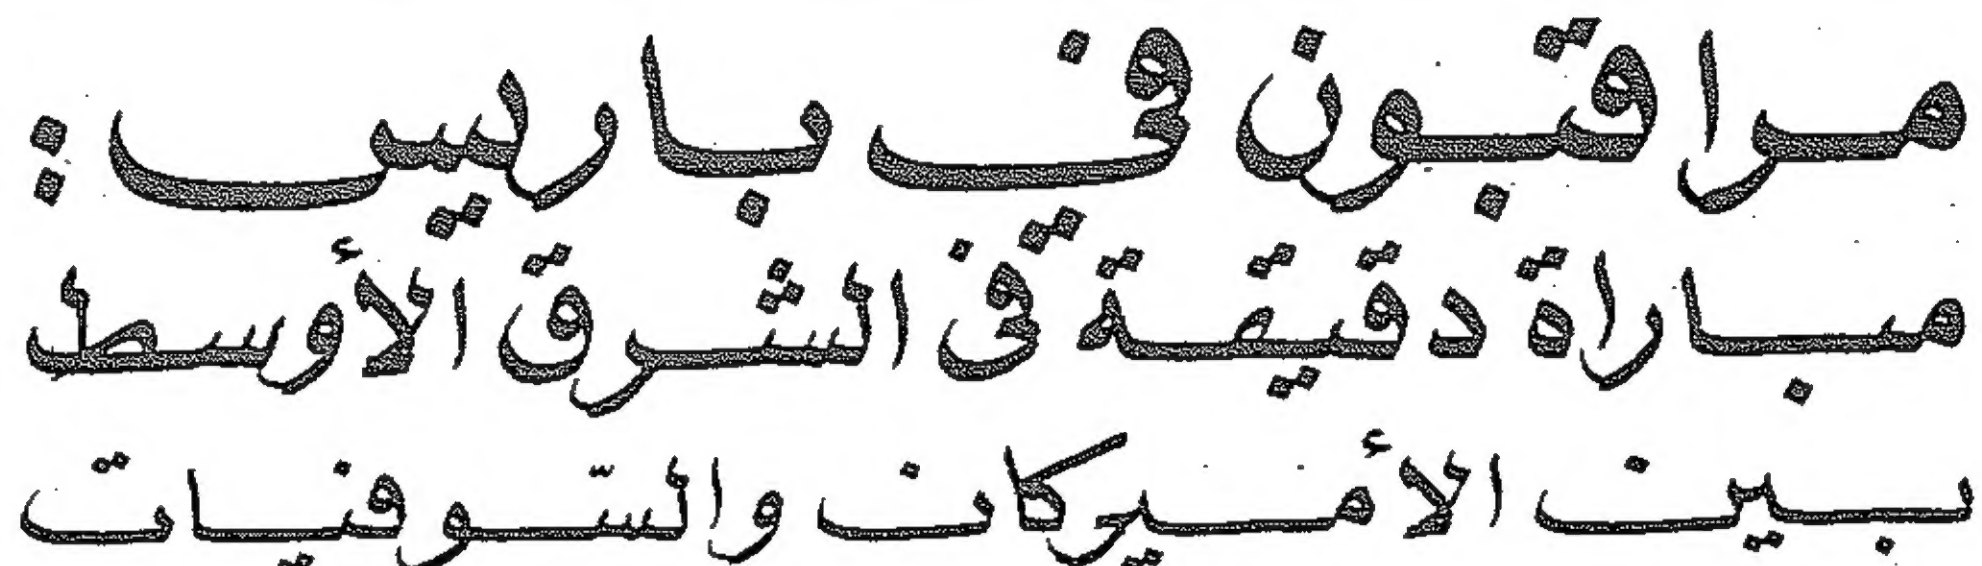 مراقبون في باريس :
مباراة دقيقة في الشرق الأوسط
بين الأميركان والسّوفيات